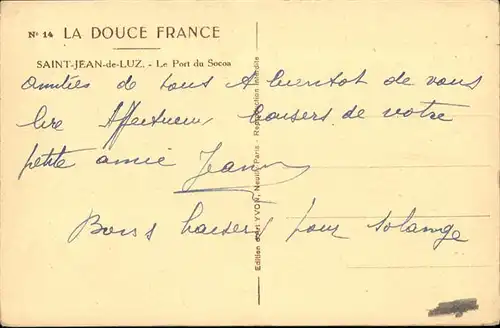 Nº 14 LA DOUCE FRANCE
SAINT-JEAN-de-LUZ. - Le Port du Socoa
Amitiés de tous A bientot de vous
lire Affectueux baisers de votre
petite amie Jeann
Bons baisers pour Solange
Edition d'Art YVON, Neuilly-Paris - Reproduction Interdite